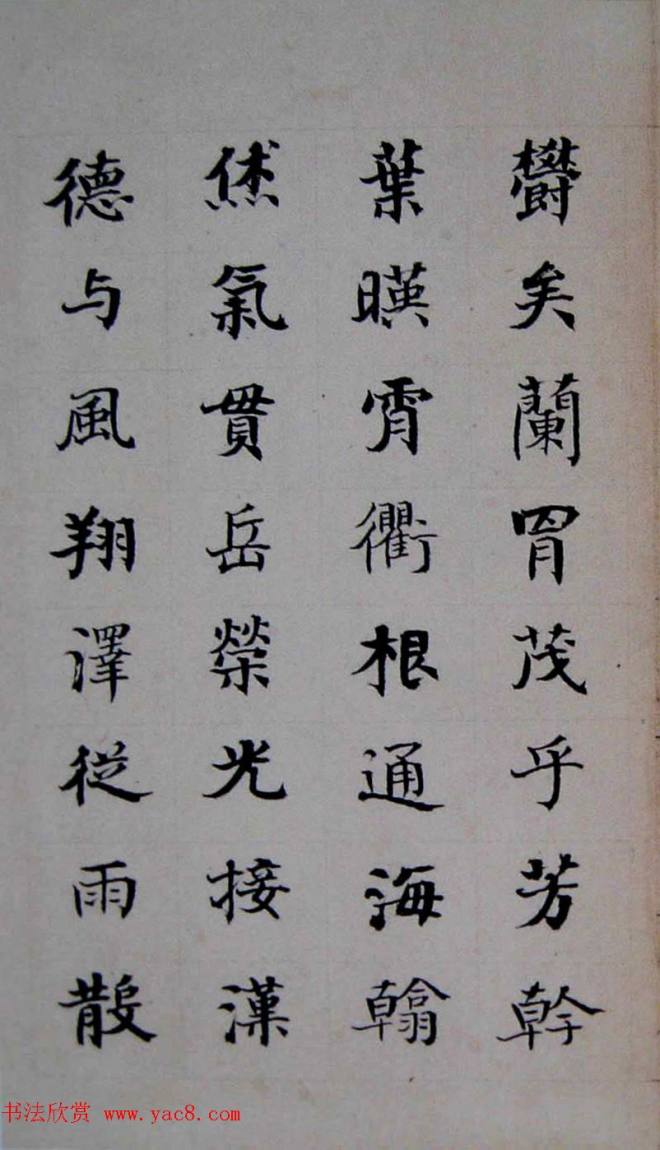 欝矣蘭胃茂乎芳幹
葉暎霄衢根通海翰
恷氣貫岳榮光接漢
德与風翔澤從雨散
书法欣赏 www.yac8.com